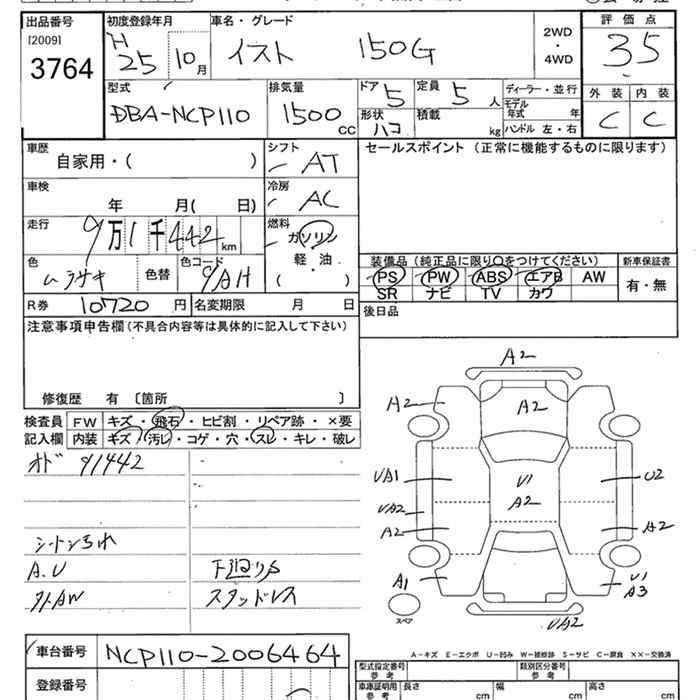 出品番号 初度登録年月 車名・グレード 2WD・4WD 評価点
[2009] H 25 10月 イスト 150G 35
3764
型式 排気量 ドア 5 定員 5人 ディーラー・並行 外装 内装
DBA-NCP110 1500cc 形状 ハコ 積載 kg モデル年式 年 C C
ハンドル 左・右
車歴 シフト セールスポイント (正常に機能するものに限ります)
自家用・( ) AT
車検 冷房
年 月( 日) AC
走行 9万1千442km 燃料
ガソリン
軽油
( )
色 ムラサキ 色替 色コード 9AH
装備品 (純正品に限り○をつけてください) 新車保証書
PS PW ABS エアB AW 有・無
SR ナビ TV カワ
R券 10720円 名変期限 月 日 後日品
注意事項申告欄 (不具合内容等は具体的に記入して下さい)
修復歴 有 [箇所 ]
検査員 FW キズ・飛石・ヒビ割・リペア跡・×要
記入欄 内装 キズ・汚レ・コゲ・穴・スレ・キレ・破レ
オド 91442
A.U 下廻りS
スタッドレス
A2
A2 A2
UA1 U1 U2
A2
UA2
A2 A2
A1 U1
A3
スペア
UA2
A-キズ E-エクボ U-凹み W-補修跡 S-サビ C-腐食 ××-交換済
車台番号 NCP110-2006464
登録番号
型式指定番号 参考 類別区分番号 参考
車庫証明用 参考 長さ cm 幅 cm 高さ cm